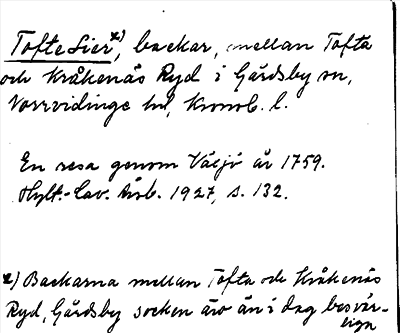 Toftelier x), backar, mellan Tofta
och Kråkenäs Ryd i Gårdsby sn,
Norrvidinge hd, Kronob. l.
En resa genom Växjö år 1759.
Hylt.-Cav. Årsb. 1927, s. 132.
x) Backarna mellan Tofta och Kråkenäs
Ryd, Gårdsby socken äro än i dag besvär-
liga